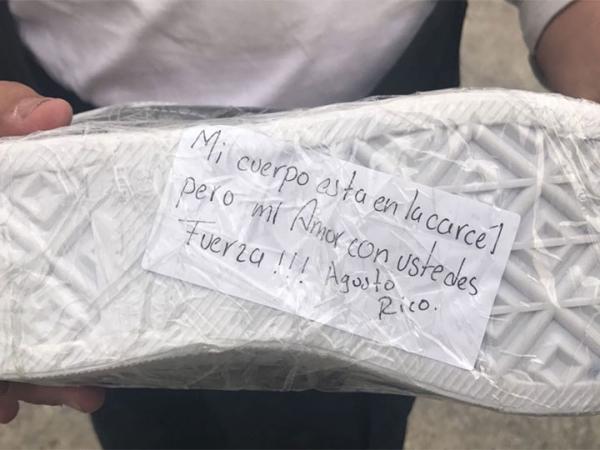 Mi cuerpo esta en la carcel
pero mi Amor con ustedes
Fuerza!!! Agusto
Rico.